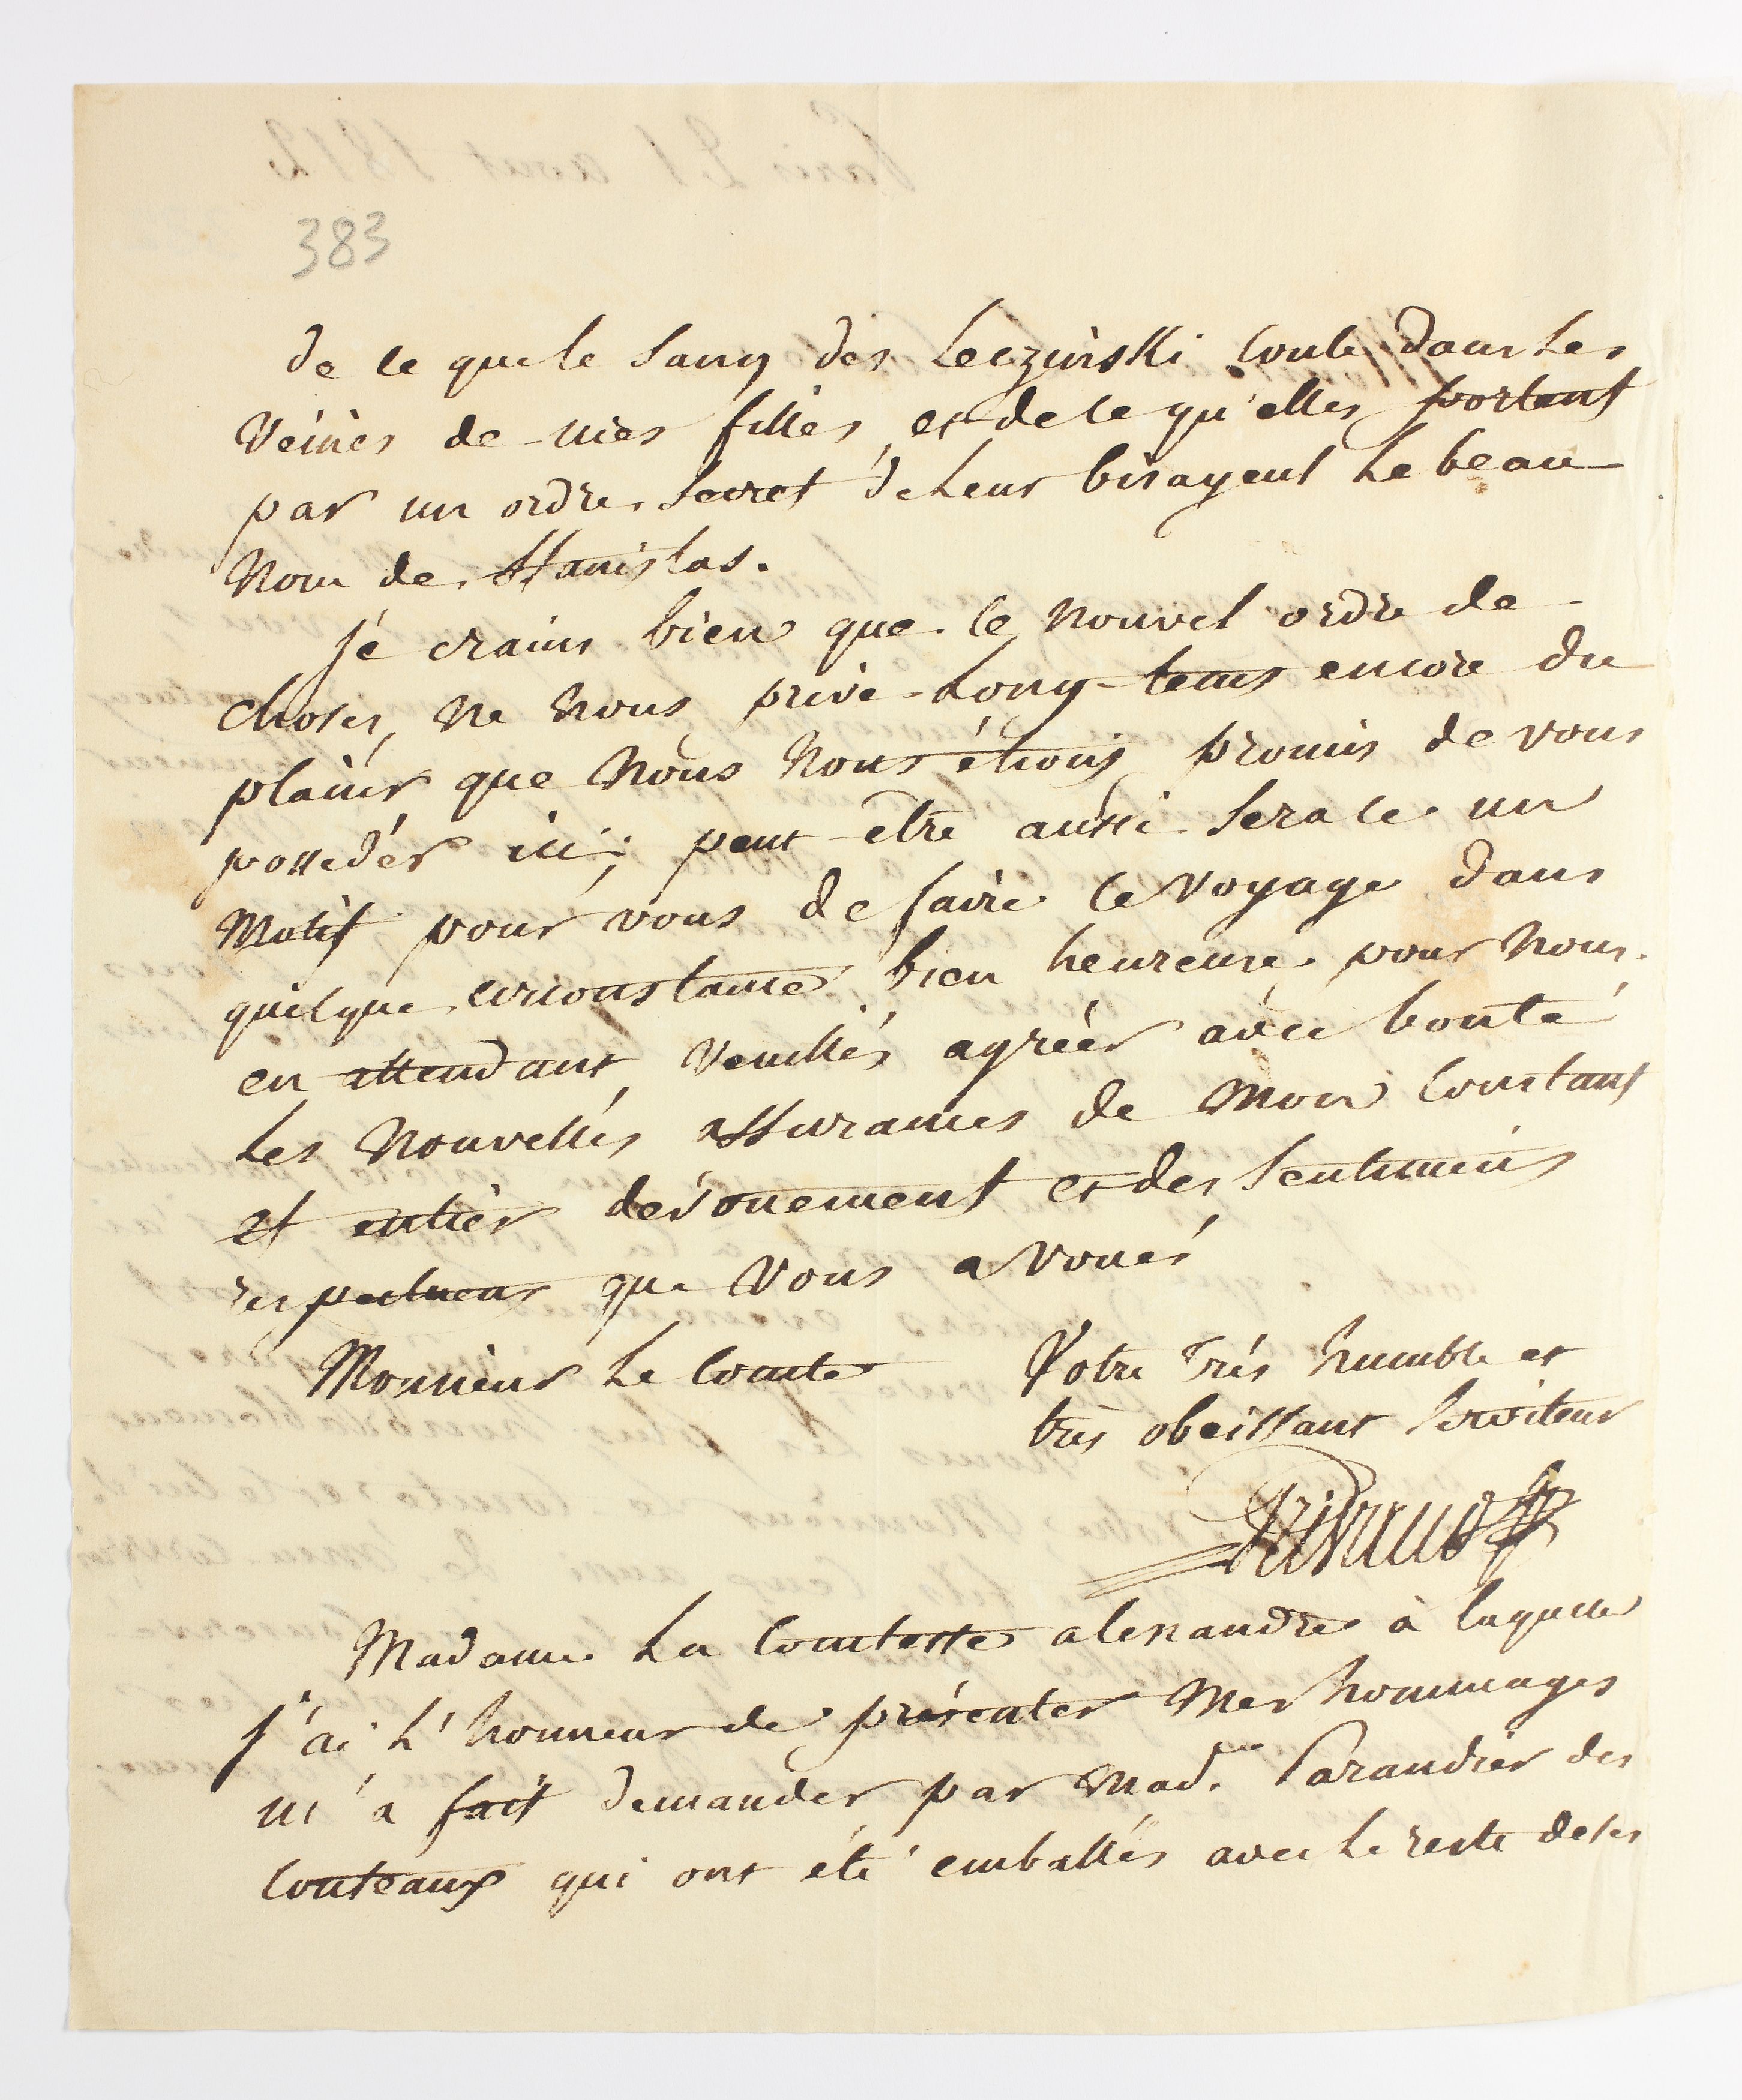 383
de ce que le sang des Leczinski coule dans les
veines de mes filles et de ce qu'elles portent
par un ordre secret de leur bisayeul le beau
nom de Stanislas.
Je crains bien que le nouvel ordre de
choses, ne nous prive long-tems encore du
plaisir que nous nous étions promis de vous
posseder ici; peut-etre aussi sera ce un
motif pour vous de faire ce voyage dans
quelque circonstance bien heureuse pour nous.
en attendant, veuillés agréer avec bonté
les nouvelles assurances de mon constant
et entier dévouement et des sentimens
respectueux que vous a voués
Monsieur le Comte
Votre très humble et
très obeissant serviteur
Madame la Comtesse alexandre à laquelle
j'ai l'honneur de présenter mes hommages
m'a fait demander par Mad.me Parandier des
couteaux qui ont été emballés avec le reste de ses